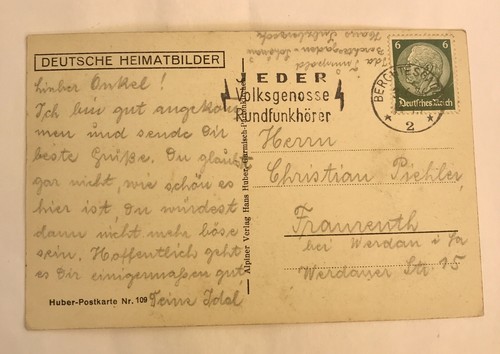 DEUTSCHE HEIMATBILDER
Lieber Onkel!
Ich bin gut angekom
men und sende Dir
beste Grüße. Du glaubst
gar nicht, wie schön es
hier ist, Du würdest
dann nicht mehr böse
sein. Hoffentlich geht
es Dir einigermaßen gut
Deine Idel
Huber-Postkarte Nr. 109
Alpiner Verlag Hans Huber, Garmisch-Partenkirchen
Berchtesgaden-Schönau
JEDER
Volksgenosse
Rundfunkhörer
BERCHTESGADEN
2
6 6
Deutsches Reich
Herrn
Christian Piehler,
Fraureuth
bei Werdau i/Sa
Werdauer Str. 15